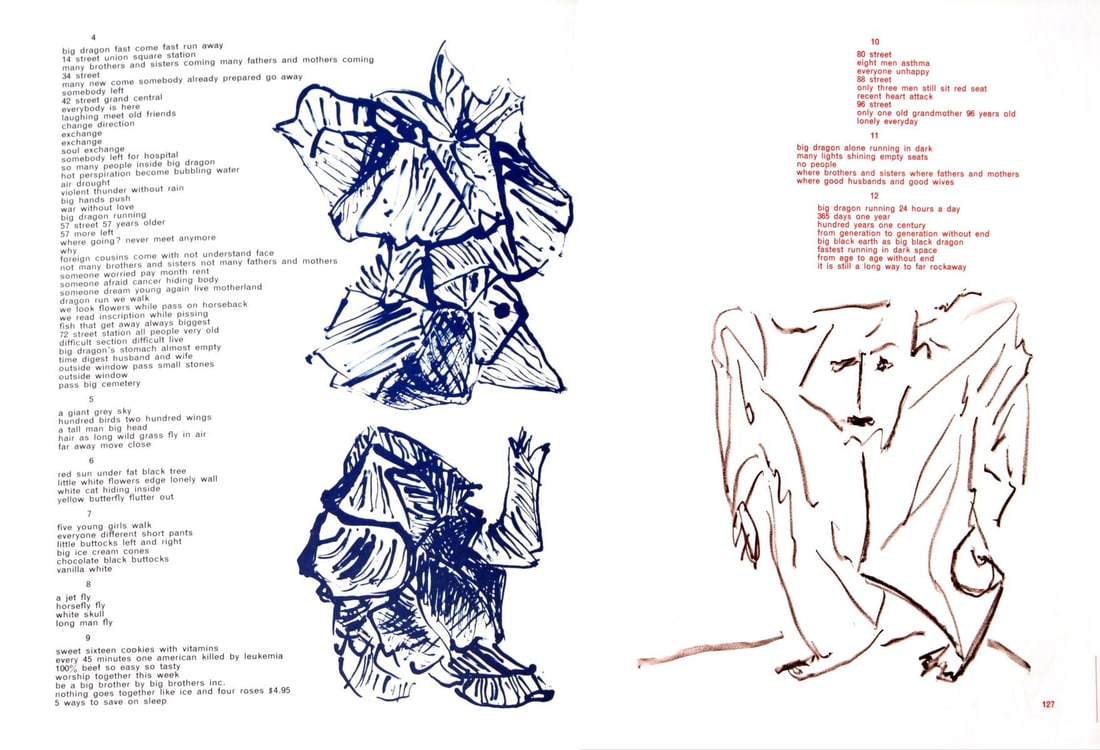 4
big dragon fast come fast run away
14 street union square station
many brothers and sisters coming many fathers and mothers coming
34 street
many new come somebody already prepared go away
somebody left
42 street grand central
everybody is here
laughing meet old friends
change direction
exchange
exchange
soul exchange
somebody left for hospital
so many people inside big dragon
hot perspiration become bubbling water
air drought
violent thunder without rain
big hands push
war without love
big dragon running
57 street 57 years older
57 more left
where going? never meet anymore
why
foreign cousins come with not understand face
not many brothers and sisters not many fathers and mothers
someone worried pay month rent
someone afraid cancer hiding body
someone dream young again live motherland
dragon run we walk
we look flowers while pass on horseback
we read inscription while pissing
fish that get away always biggest
72 street station all people very old
difficult section difficult live
big dragon's stomach almost empty
time digest husband and wife
outside window pass small stones
outside window
pass big cemetery
5
a giant grey sky
hundred birds two hundred wings
a tall man big head
hair as long wild grass fly in air
far away move close
6
red sun under fat black tree
little white flowers edge lonely wall
white cat hiding inside
yellow butterfly flutter out
7
five young girls walk
everyone different short pants
little buttocks left and right
big ice cream cones
chocolate black buttocks
vanilla white
8
a jet fly
horsefly fly
white skull
long man fly
9
sweet sixteen cookies with vitamins
every 45 minutes one american killed by leukemia
100% beef so easy so tasty
worship together this week
be a big brother by big brothers inc.
nothing goes together like ice and four roses $4.95
5 ways to save on sleep
10
80 street
eight men asthma
everyone unhappy
88 street
only three men still sit red seat
recent heart attack
96 street
only one old grandmother 96 years old
lonely everyday
11
big dragon alone running in dark
many lights shining empty seats
no people
where brothers and sisters where fathers and mothers
where good husbands and good wives
12
big dragon running 24 hours a day
365 days one year
hundred years one century
from generation to generation without end
big black earth as big black dragon
fastest running in dark space
from age to age without end
it is still a long way to far rockaway
127